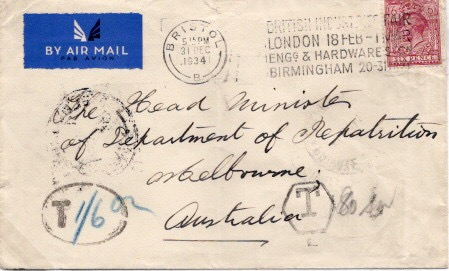 BY AIR MAIL
PAR AVION
BRISTOL
5:15PM
31 DEC
1934
B
BRITISH INDUSTRIES FAIR
LONDON 18 FEB - 1
ENG9 & HARDWARE S
BIRMINGHAM 20-31
SIX PENCE
The Head Minister
of Department of Repatrition
Melbourne.
Australia
T 1/6
T